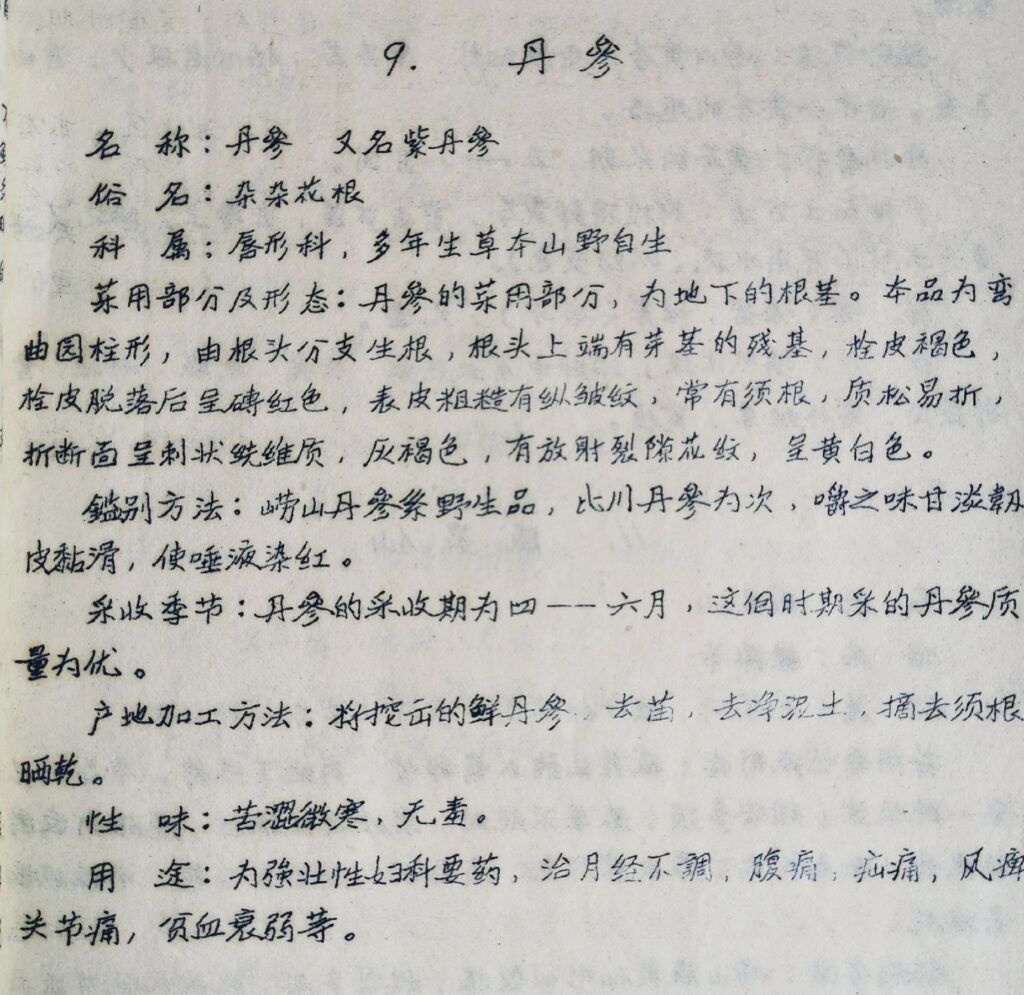 9. 丹參
名 称：丹參 又名紫丹參
俗 名：杂杂花根
科 属：唇形科，多年生草本山野自生
药用部分及形态：丹參的药用部分，为地下的根茎。本品为弯
曲园柱形，由根头分支生根，根头上端有芽茎的残基，栓皮褐色，
栓皮脱落后呈磚红色，表皮粗糙有纵皱纹，常有须根，质松易折，
折断面呈刺状纤维质，灰褐色，有放射裂隙花纹，呈黄白色。
鑑别方法：崂山丹參系野生品，比川丹參为次，嚼之味甘涩韌
皮黏滑，使唾液染红。
采收季节：丹參的采收期为四——六月，这個时期采的丹參质
量为优。
产地加工方法：将挖出的鲜丹參，去苗，去净泥土，摘去须根
晒乾。
性 味：苦澀微寒，无毒。
用 途：为強壮性妇科要药，治月经不調，腹痛，疝痛，风痺
关节痛，贫血衰弱等。